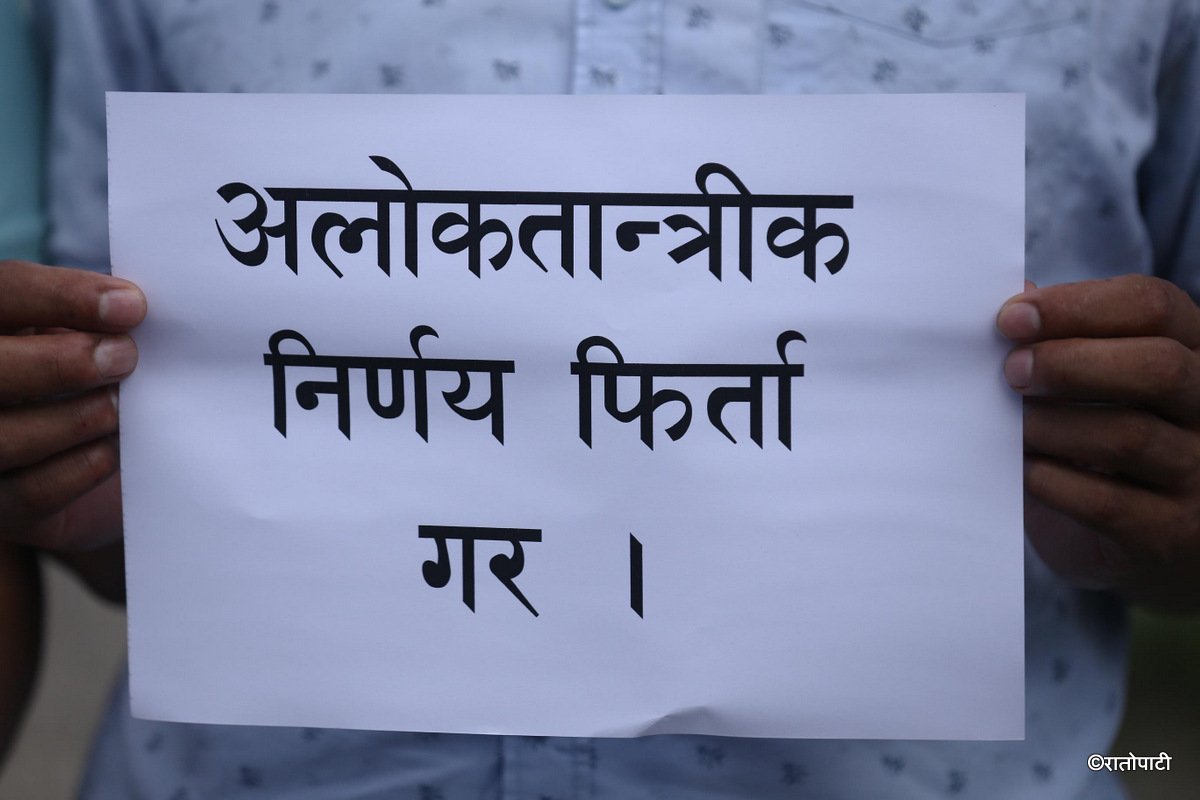 अलोकतान्त्रीक
निर्णय फिर्ता
गर ।
©रातोपाटी